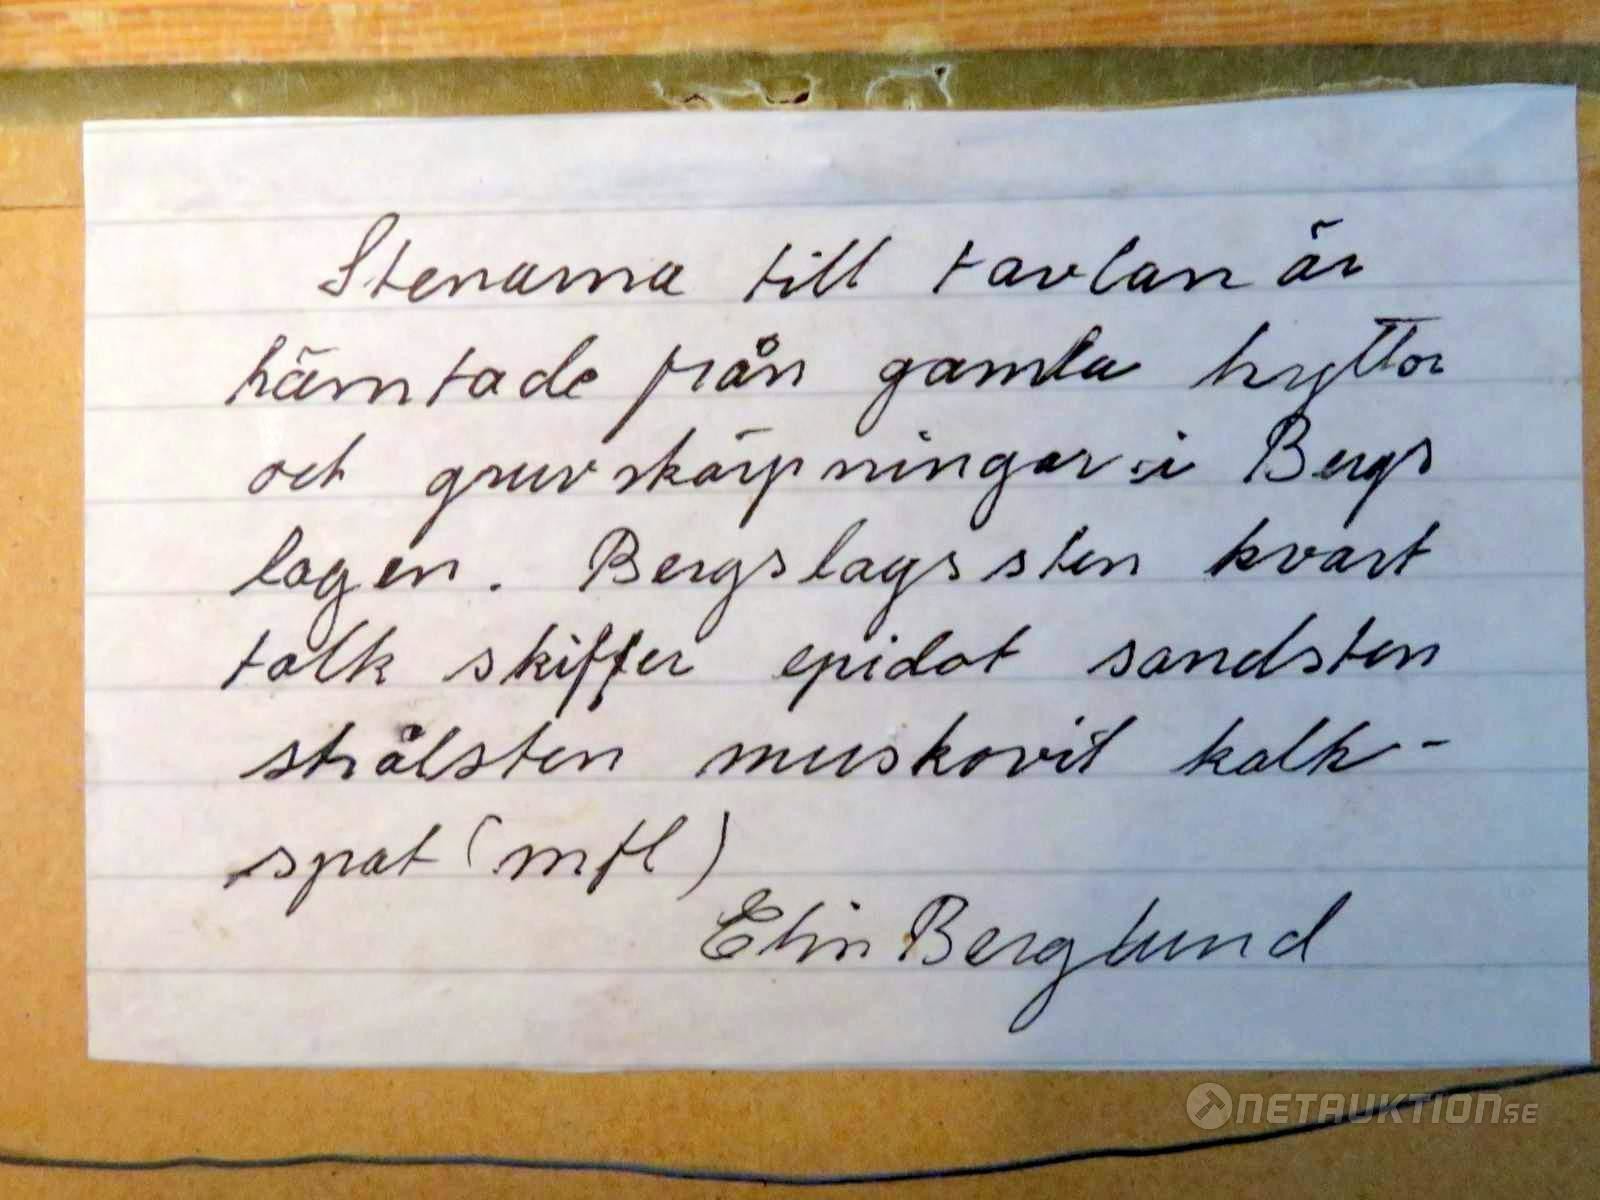 Stenarna till tavlan är
hämtade från gamla hyttor
och gruvskärpningar i Bergs
lagen. Bergslagssten kvart
talk skiffer epidot sandsten
strålsten muskovit kalk-
spat (mfl)
Elin Berglund
NETAUKTION.SE